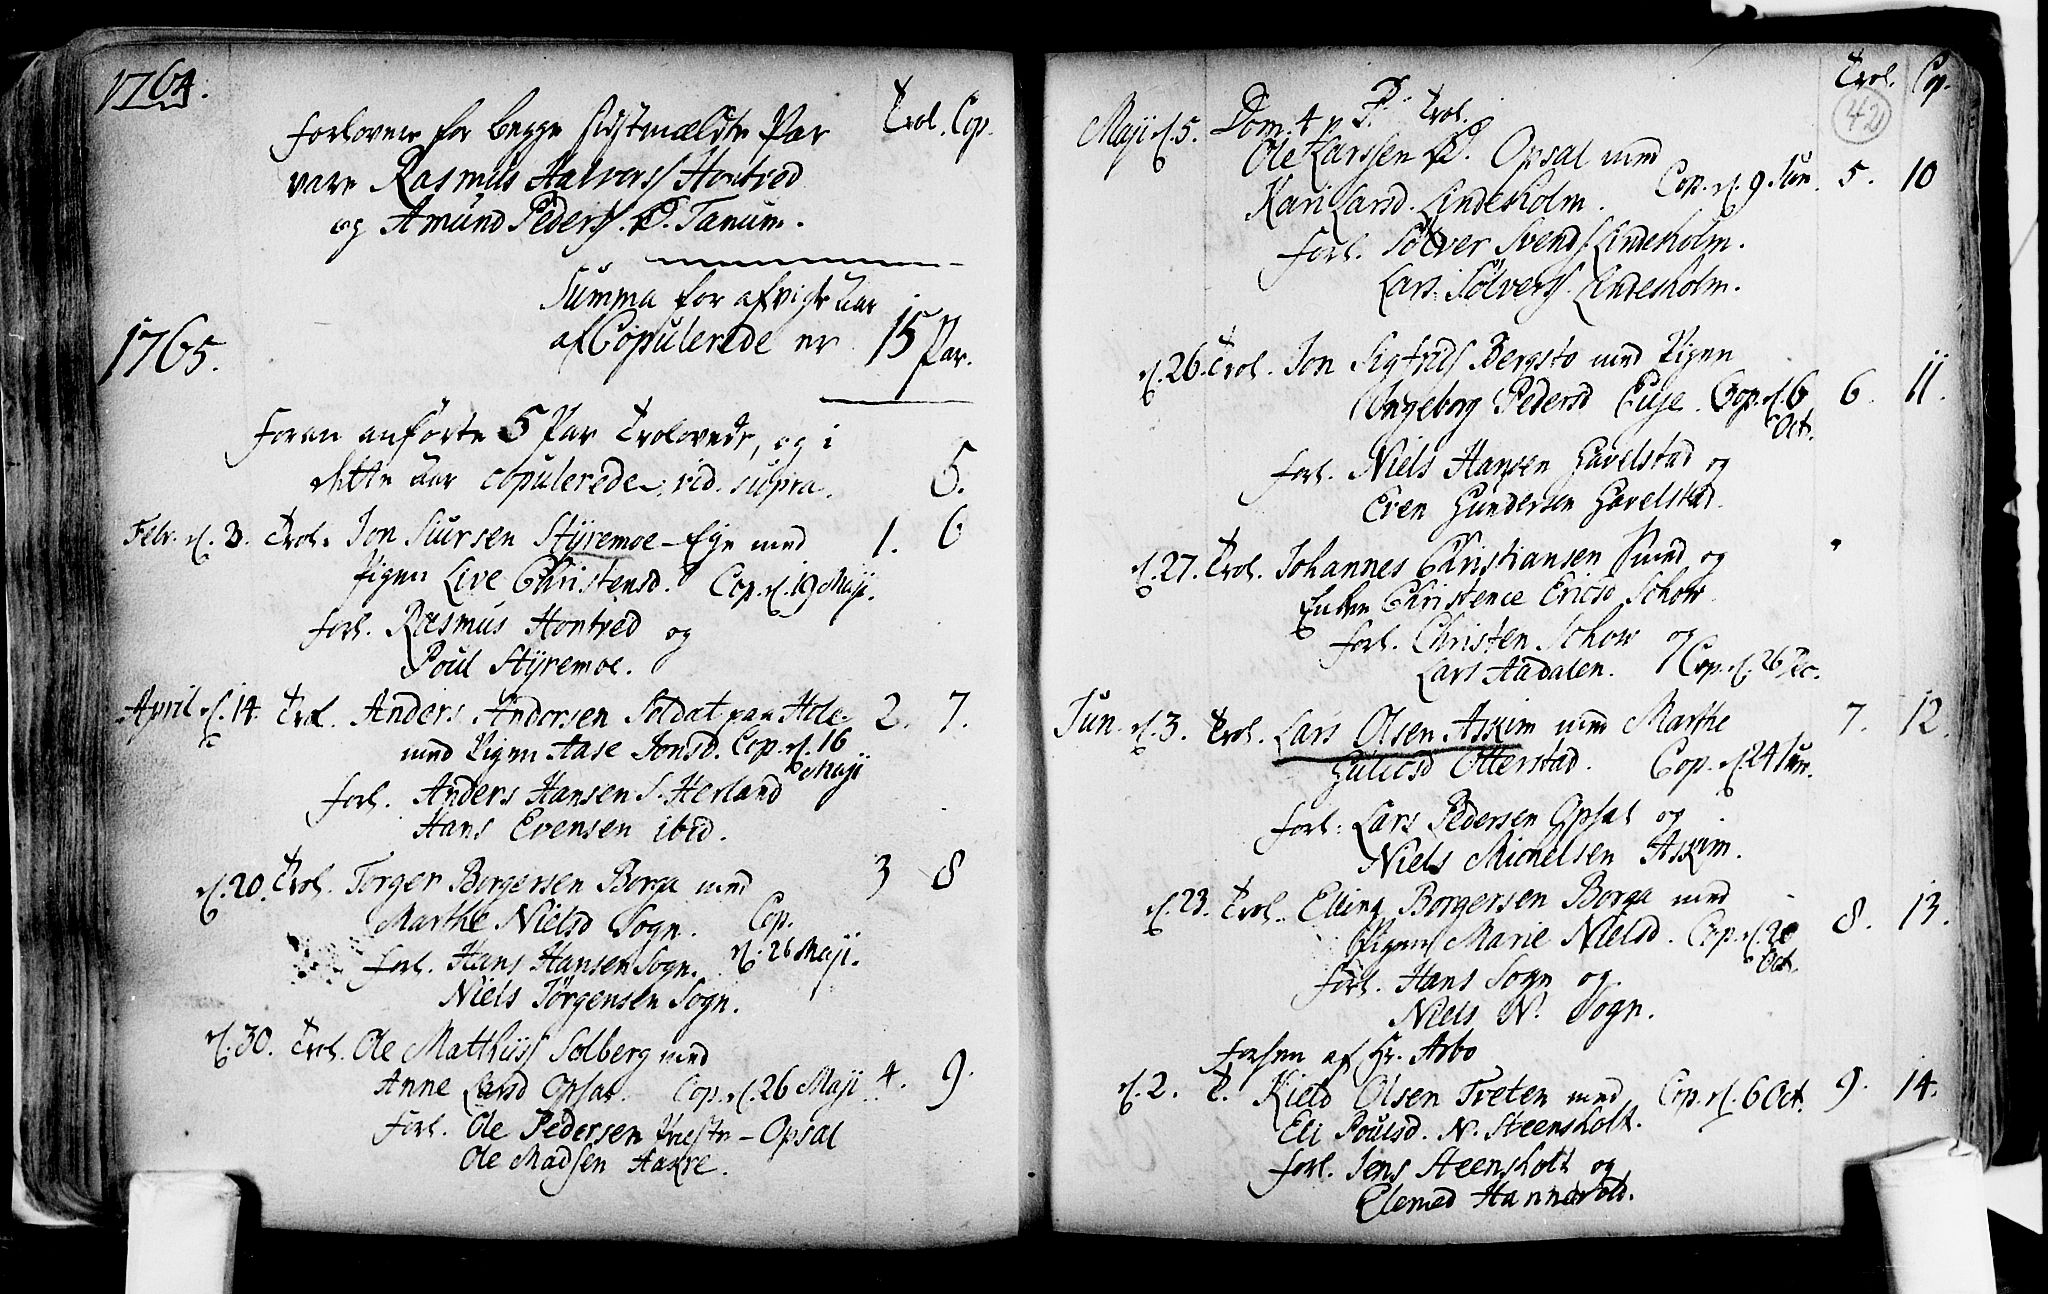 1764.
Trol. Cop.
Forlovere for begge sidstmældte Par
vare Rasmus Halvors. Hontved
og Amund Peders. Ø. Tanum.
Summa for afvigte Aar
af Copulerede er 15 Par.
1765.
Foran anførte 5 Par Trolovede, og i
dette Aar copulerede, vid. supra. 5.
Febr. d. 3. Trol. Jon Siursen Styremoe-Eye med 1. 6
Pigen Live Christensd. Cop. d. 19 Maji.
forl. Rasmus Hontved og
Poul Styremoe.
April d. 14. Trol. Anders Andersen Soldat paa Hole 2. 7.
med Pigen Aase Jonsd. Cop. d. 16 Maji
forl. Anders Hansen S. Herland
Hans Evensen ibid.
d. 20. Trol. Torger Borgersen Borga med 3 8
Marthe Nielsd Sogn. Cop. d. 26 Maji.
forl. Hans Hansen Sogn.
Niels Jørgensen Sogn.
d. 30. Trol. Ole Matthiiss Solberg med
Anne Larsd Opsal. Cop. d. 26 Maji 4. 9.
forl. Ole Pedersen Præste-Opsal
Ole Madsen Aakre.
Trol. Cop.
42
Maji d. 5. Dom. 4 p. P. Trol.
Ole Larssen Ø. Opsal med
Kari Larsd. Lindesholm. Cop. d. 9 Jun. 5. 10
forl. Sølver Svends Lindeholm.
Lars Sølvers. Lindesholm.
d. 26. Trol. Jon Sigfrids Bergstø med Pigen
Ingeborg Pedersd Euje. Cop. d. 6 Oct. 6. 11.
forl. Niels Hansen Gavelstad og
Even Gundersen Gavelstad.
d. 27. Trol. Johannes Christiansen Smed og
Enken Christence Ericsd Schow
forl. Christen Schow og
Lars Aadalen. Cop. d. 26
Jun. d. 3. Trol. Lars Olsen Askim med Marthe 7. 12.
Gulicsd Otterstad. Cop. d. 24 Jun.
forl. Lars Pedersen Opsal og
Niels Michelsen Askim.
d. 23. Trol. Elling Borgersen Borga med 8. 13.
Pigen Marie Nielsd. Cop. d. 20 Oct.
forl. Hans Sogn og
Niels N. Sogn.
Forsen af Hr. Arbo
d. 2. T. Kield Olsen Treten med Cop. d. 6 Oct. 9 14.
Eli Poulsd. N. Steensholt.
forl. Jens Steensholt og
Elemed Hannevold.